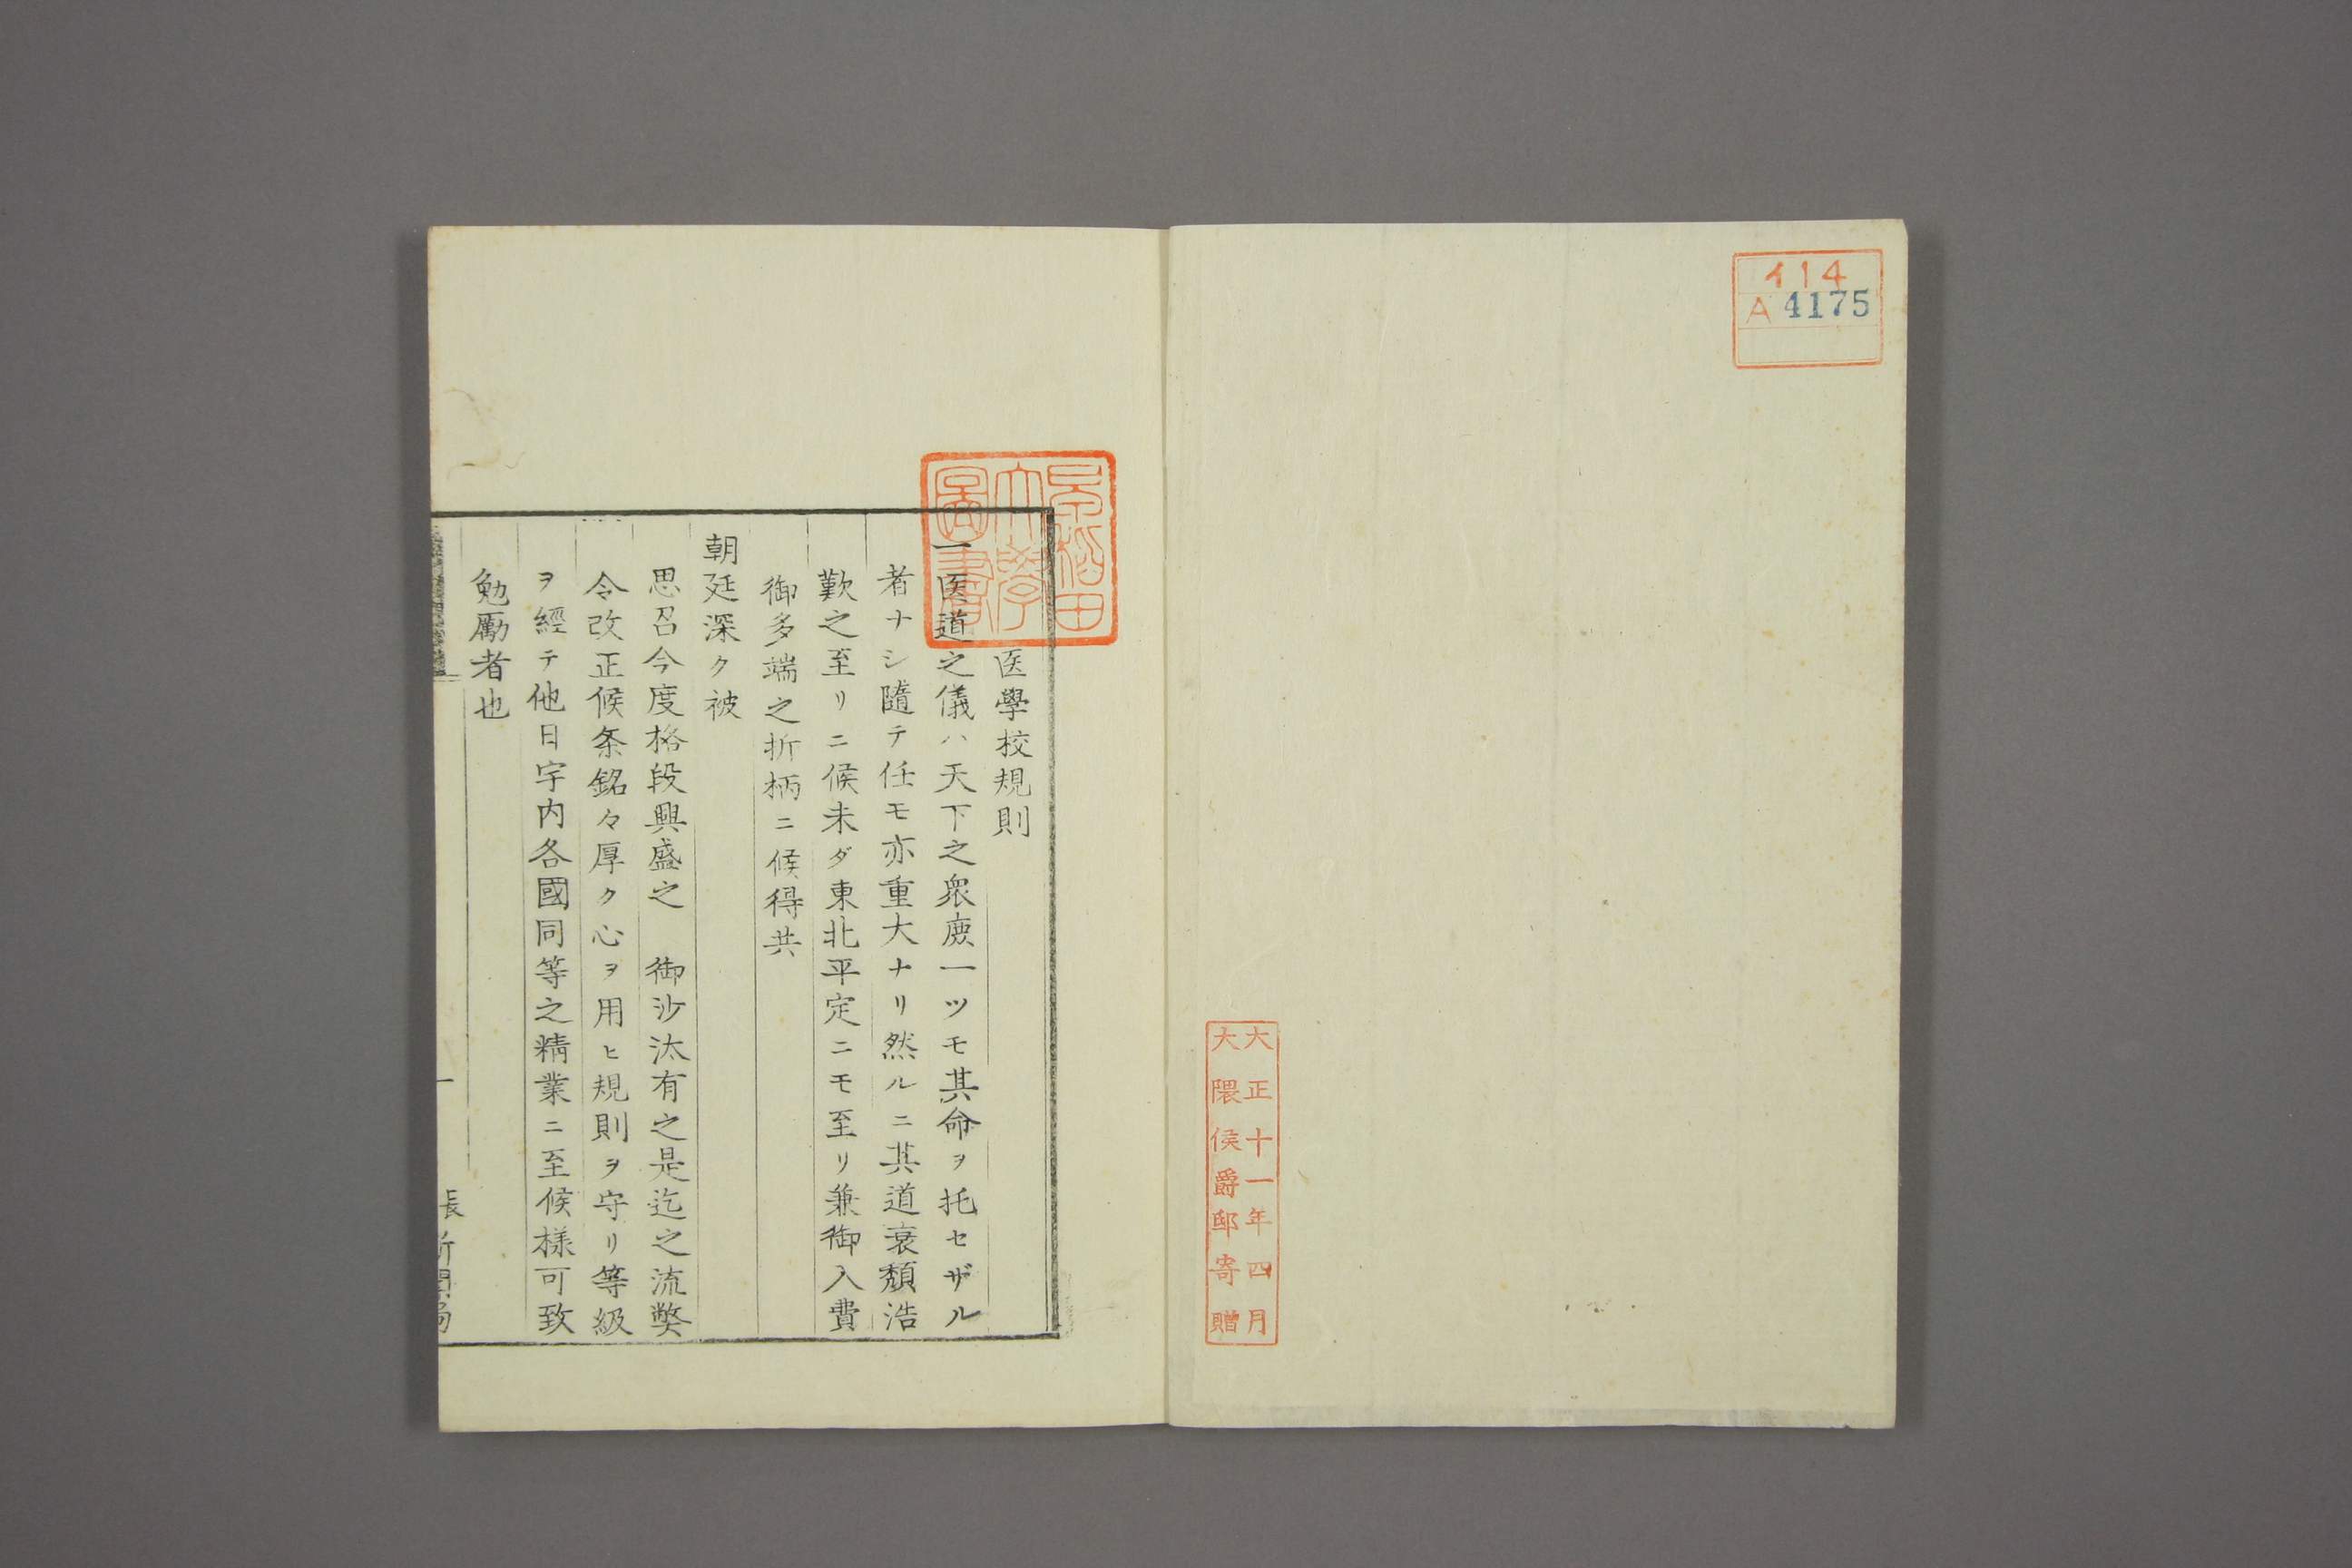 イ14
A 4175
大正十一年四月
大隈侯爵邸寄贈
早稲田
大學
圖書
医學校規則
一医道之儀ハ天下之衆庶一ツモ其命ヲ托セザル
者ナシ隨テ任モ亦重大ナリ然ルニ其道衰頽浩
歎之至リニ候未ダ東北平定ニモ至リ兼御入費
御多端之折柄ニ候得共
朝廷深ク被
思召今度格段興盛之 御沙汰有之是迄之流弊
令改正候条銘々厚ク心ヲ用ヒ規則ヲ守リ等級
ヲ經テ他日宇内各國同等之精業ニ至候様可致
勉厲者也
一